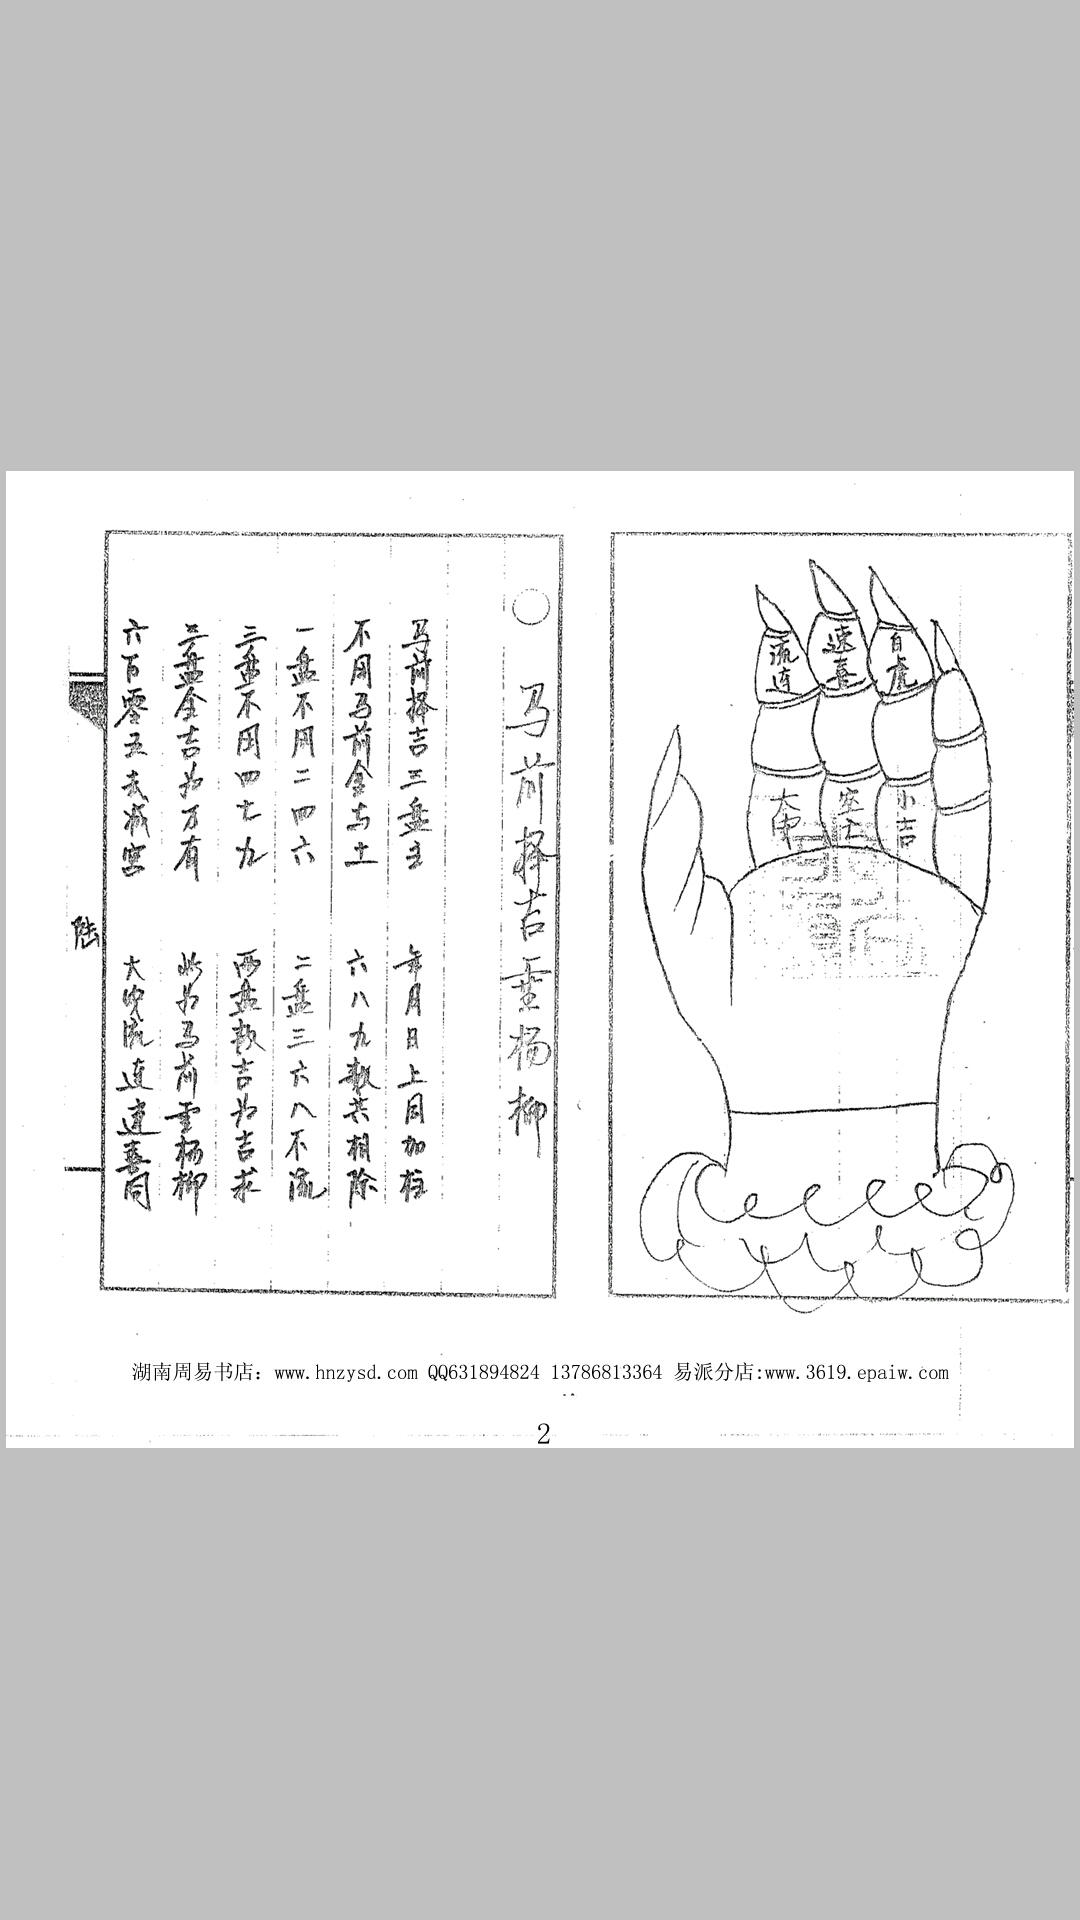 流连
速喜
白虎
大安
空亡
小吉
马前择吉雪杨柳
马前择吉三盘主 年月日上同加柱
不用马前金与土 六八九数共相除
一盘不用二四六 二盘三六八不流
三盘不用四七九 两盘数吉为吉求
三盘全吉为万有 此为马前雪杨柳
六百零五去减宫 大安流连速喜同
陆
湖南周易书店：www.hnzysd.com QQ631894824 13786813364 易派分店:www.3619.epaiw.com
2